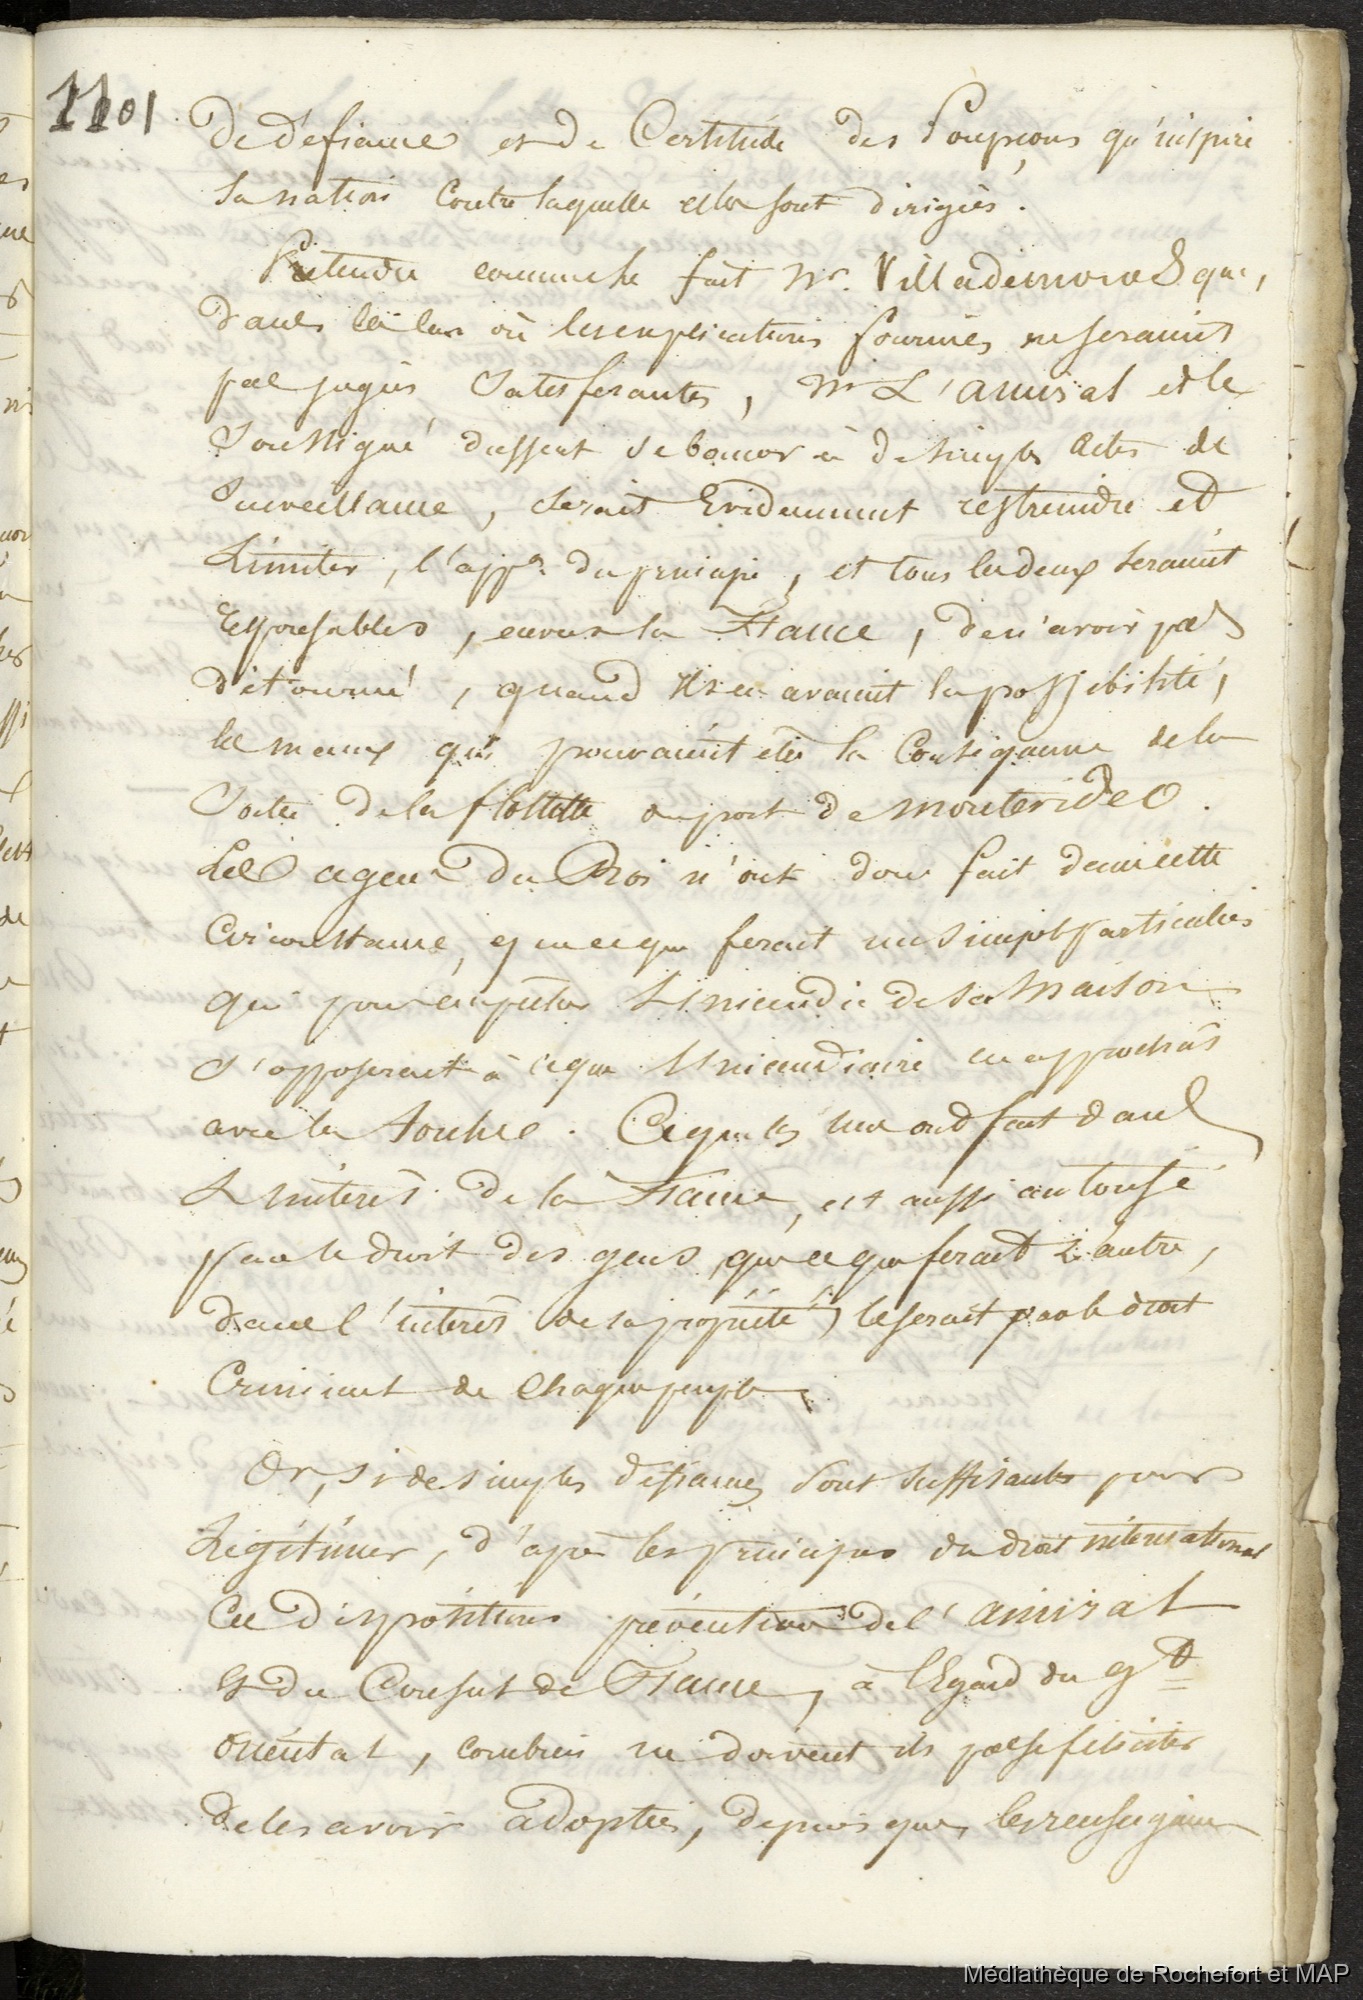 1101
De défiance et de Certitude des Soupçons qu'inspire
la nation contre laquelle elles sont dirigées.
Prétendre comme le fait Mr. Villademoros que,
dans le cas où les explications fournies ne seraient
pas jugées Satisfesantes, Mr L'amiral et le
Soussigné dussent se borner à de simples actes de
Surveillance, serait Evidemment restreindre et
Limiter, l'appon du principe, et tous les deux seraient
Responsables, envers la France, de n'avoir pas
détourné, quand ils en avaient la possibilité,
les maux qui pouvaient être la Conséquence de la
Sortie de la flottille du port de Montevideo.
Les agens du Roi n'ont donc fait dans cette
Circonstance, que ce que ferait un simple particulier
qui pour empêcher L'incendie de sa Maison
s'opposerait à ce que l'incendiaire en approchât
avec la torche. Ce que les uns ont fait dans
L'intérêt de la France, est aussi autorisé
par le droit des gens, que ce que ferait L'autre,
dans l'intérêt de sa propriété, le serait par le droit
Criminel de chaque peuple.
Or, si de simples défiances sont suffisantes pour
Légitimer, d'après les principes du droit international
Ces dispositions préventives de l'amiral
et du Consul de France, à l'Egard du gt
oriental, combien ne doivent ils pas se féliciter
de les avoir adoptées, depuis que les renseignem
Médiathèque de Rochefort et MAP